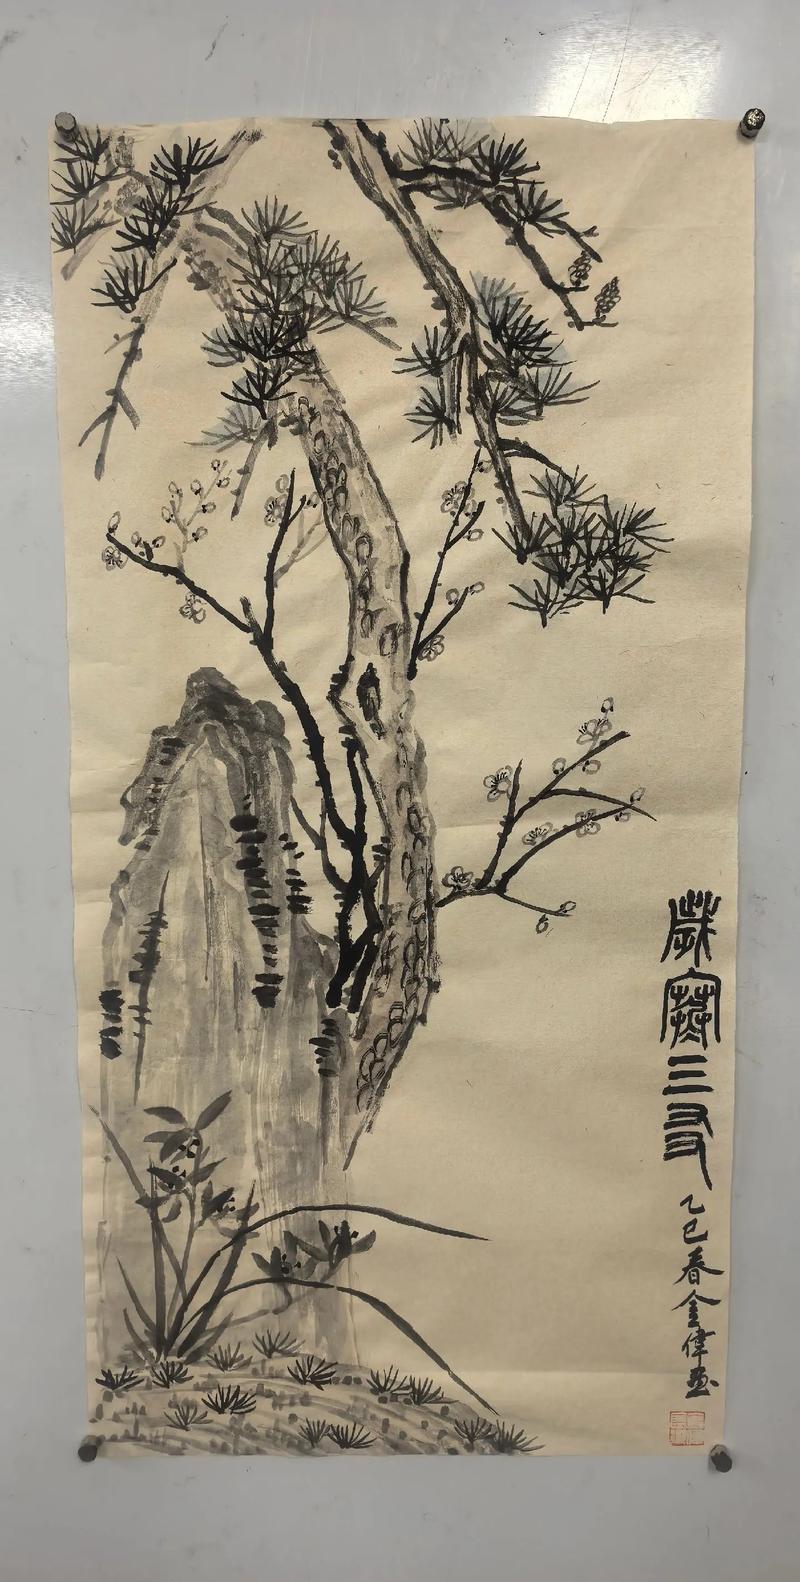 歲寒三友
乙巳春金偉畫